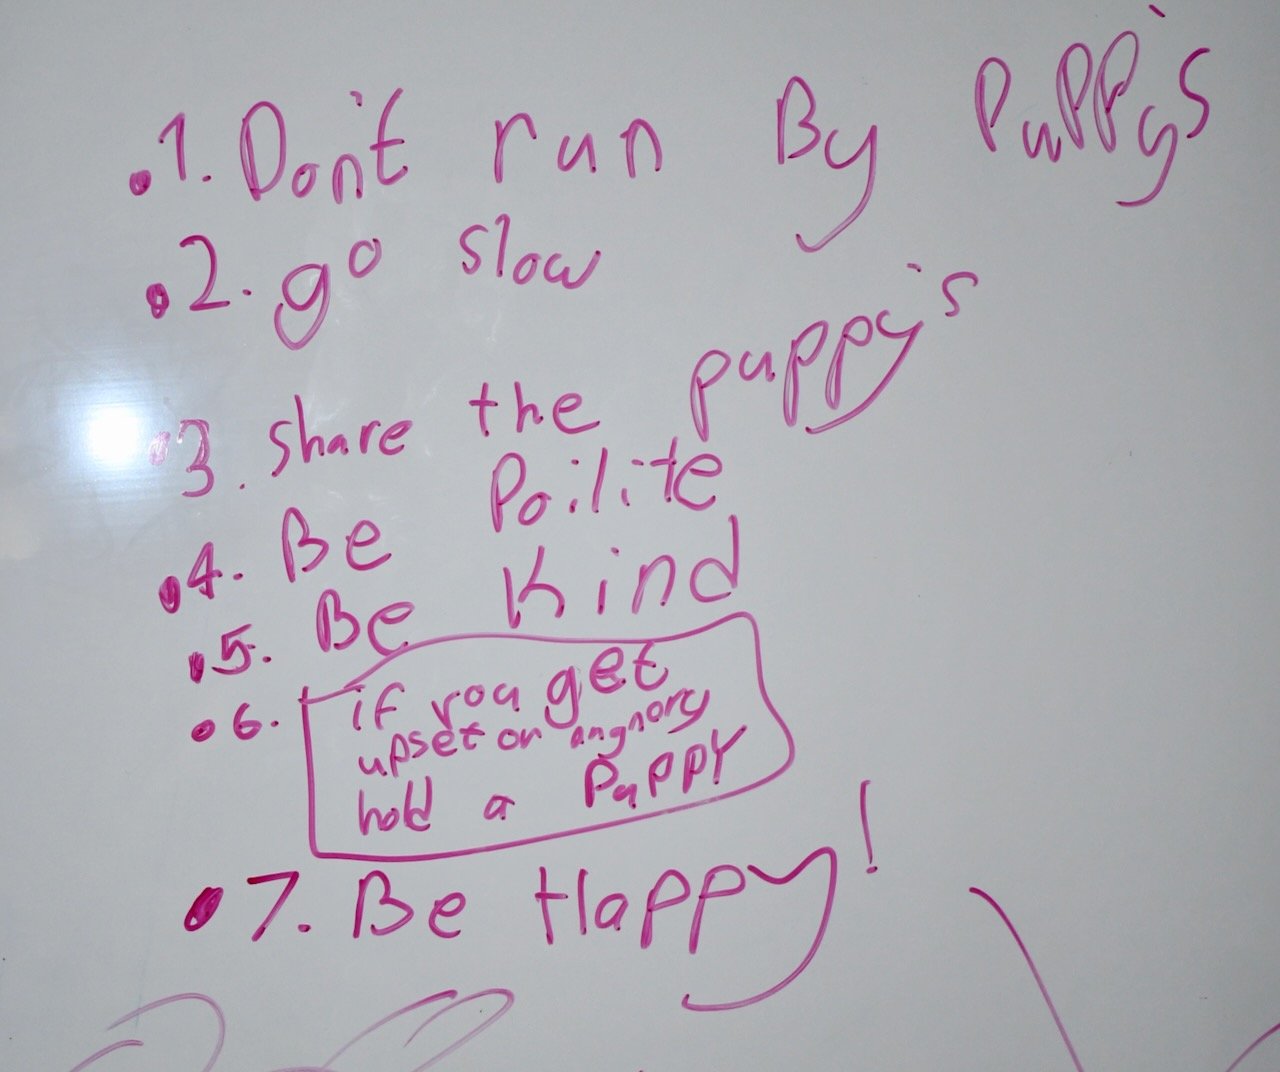 .1. Don't run By Puppy's
.2. go slow
.3. share the puppy's
.4. Be Poilite
.5. Be Kind
.6. if you get
upset or angnory
hold a PuppY
.7. Be Happy!